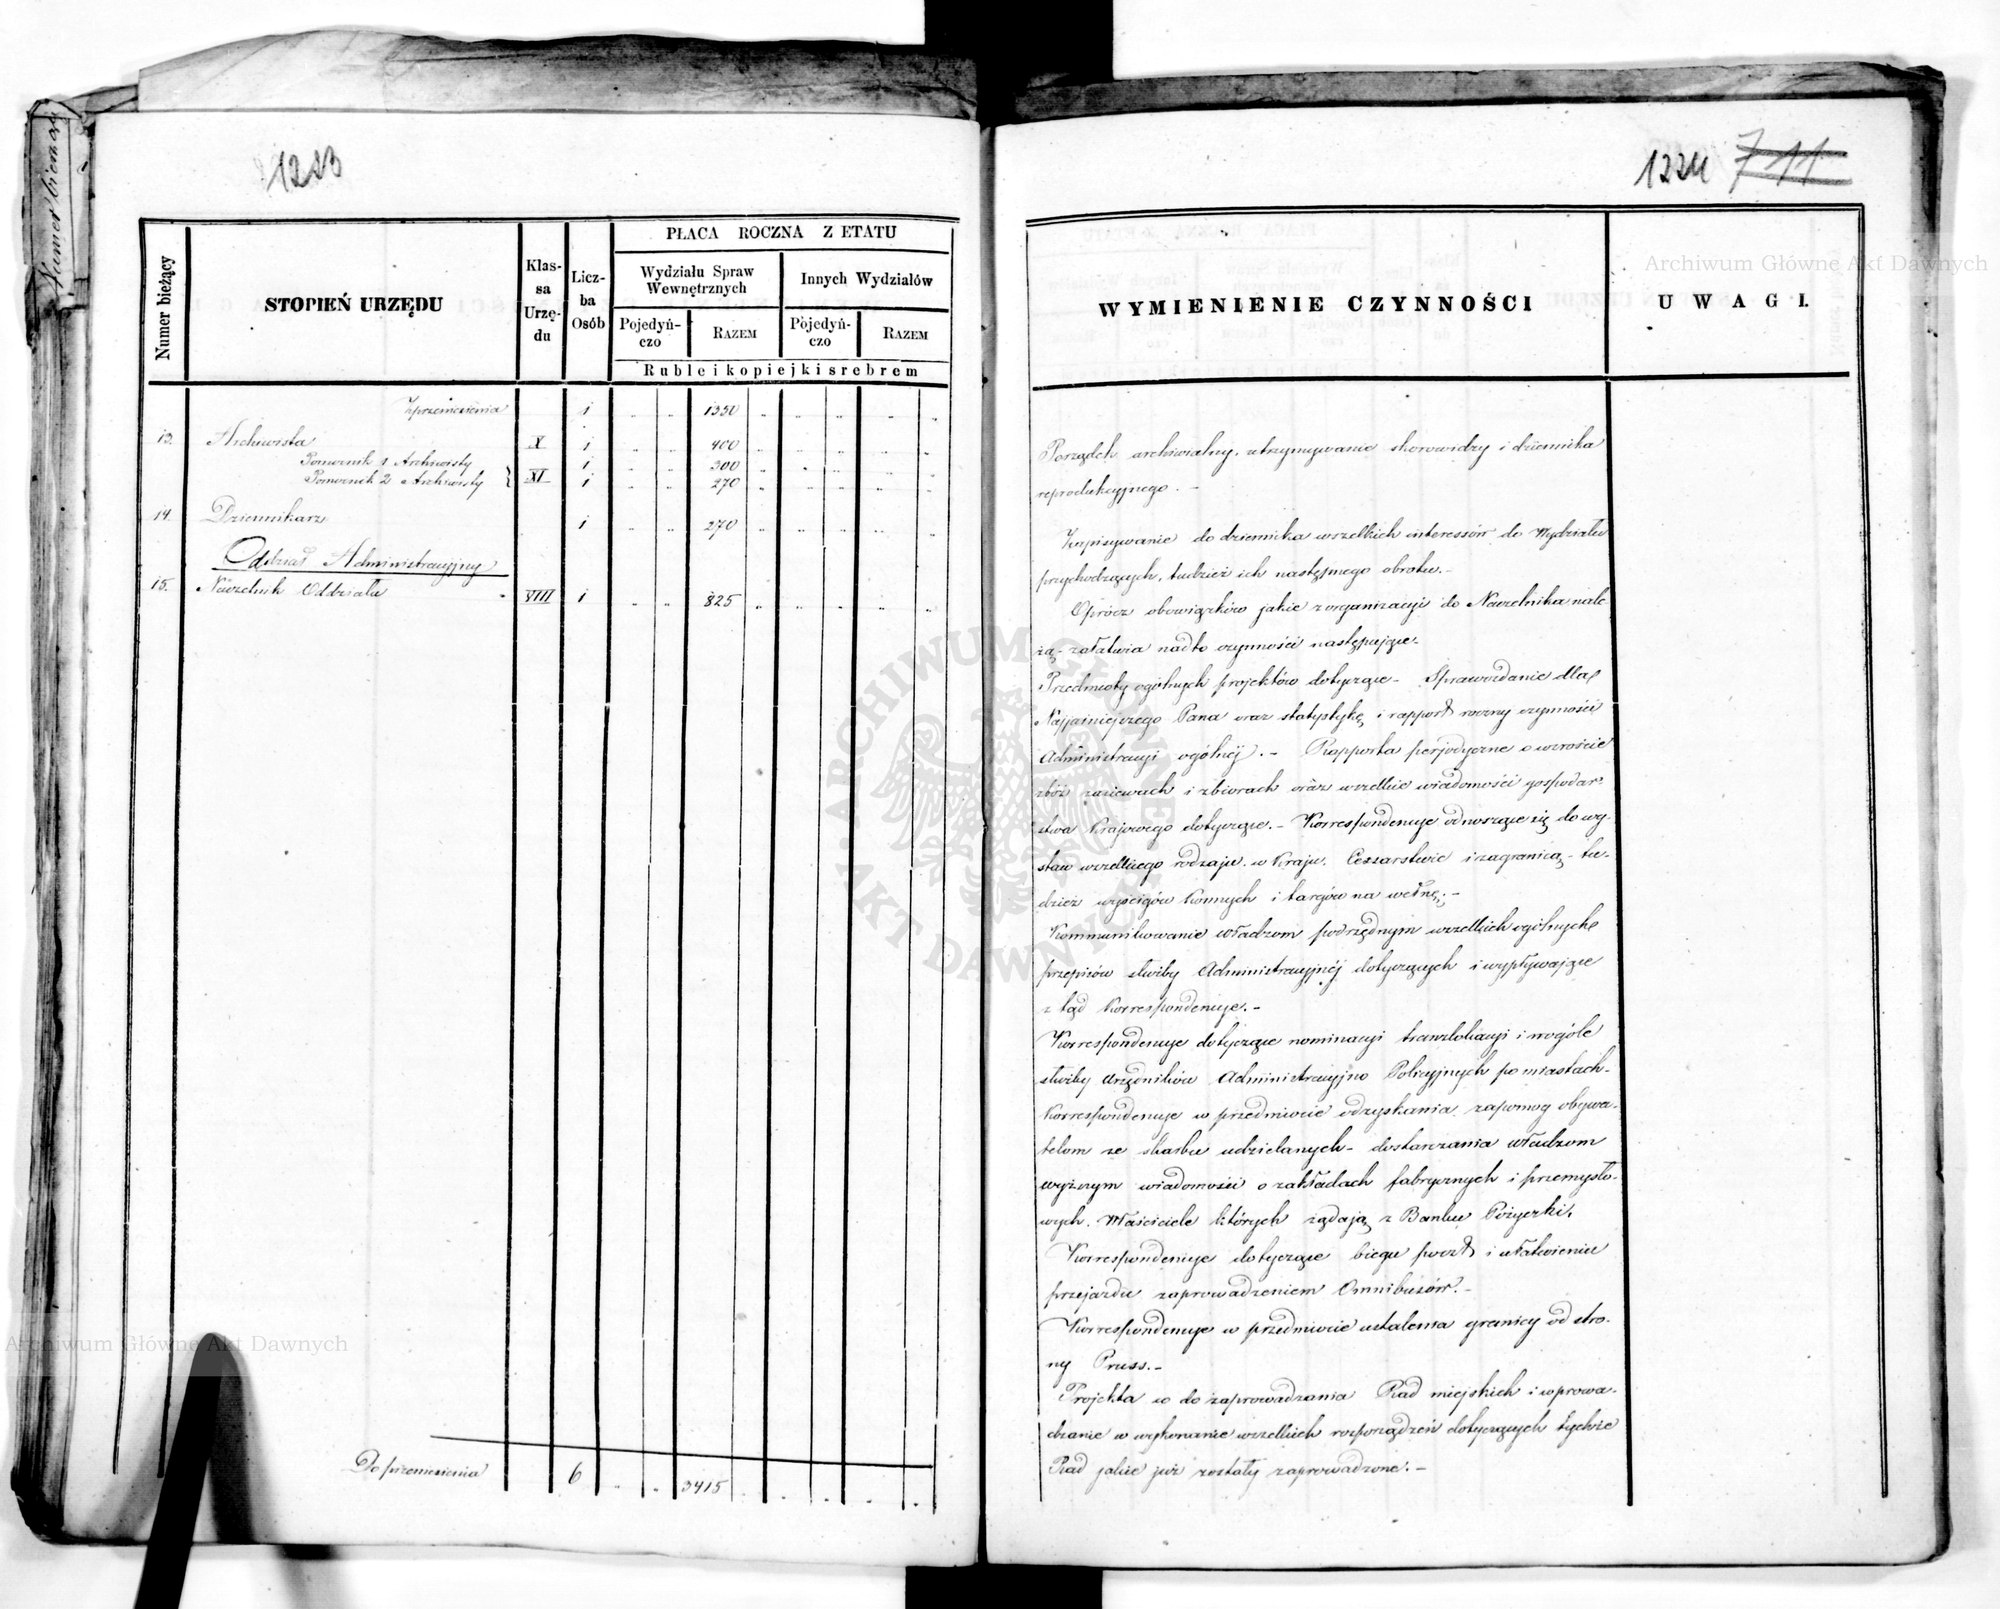 1223
Numer bieżący
STOPIEŃ URZĘDU
Klas-
sa
Urzę-
du
Licz-
ba
Osób
PŁACA ROCZNA Z ETATU
Wydziału Spraw
Wewnętrznych
Innych Wydziałów
Pojedyń-
czo
RAZEM
Pojedyń-
czo
RAZEM
Ruble i kopiejki srebrem
Z przeniesienia 1 1350
13. Archiwista X 1 400
Pomocnik 1 Archiwisty 1 300
Pomocnik 2 Archiwisty XI 1 270
14. Dziennikarz 1 270
Oddział Administracyjny
15. Naczelnik Oddziału VIII 1 825
Do przeniesienia 6 3415
1224 711
WYMIENIENIE CZYNNOŚCI
UWAGI.
Porządek archiwialny, utrzymywanie skorowidzy i dziennika
reprodukcyjnego. -
Zapisywanie do dziennika wszelkich interessów do Wydziału
przychodzących, tudzież ich następnego obrotu. -
Oprócz obowiązków jakie z organizacyi do Naczelnika nale
żą - załatwia nadto czynności następujące -
Przedmioty ogólnych projektów dotyczące - Sprawozdanie dla
Najjaśniejszego Pana oraz statystykę i rapport roczny czynności
Administracyi ogólnéj. - Rapporta perjodyczne o wzroście
zbóż zasiewach i zbiorach oraz wszelkie wiadomości gospodar
stwa Krajowego dotyczące. - Korrespondencye odnoszące się do wy-
staw wszelkiego rodzaju w Kraju, Cesarstwie i zagranicą - tu-
dzież wyścigów Konnych i targów na wełnę. -
Kommunikowanie władzom podrzędnym wszelkich ogólnych
przepisów służby Administracyjnéj dotyczących i wypływające
z tąd Korrespondencye. -
Korrespondencye dotyczące nominacyi translokacyi i wogóle
służby urzędników Administracyjno Policyjnych po miastach -
Korrespondencye w przedmiocie odzyskania zapomog obywa-
telom ze skarbu udzielanych - dostarczania władzom
wyższym wiadomości o zakładach fabrycznych i przemysło-
wych, Właściciele których żądają z Banku Pożyczki,
Korrespondencye dotyczące biegu poczt i ułatwieniu
przejazdu zaprowadzeniem Omnibusów. -
Korrespondencye w przedmiocie ustalenia granicy od stro-
ny Pruss. -
Projekta w do zaprowadzania Rad miejskich i wprowa-
dzanie w wykonanie wszelkich rozporządzeń dotyczących tychże
Rad jakie już zostały zaprowadzone. -
Archiwum Główne Akt Dawnych
Archiwum Główne Akt Dawnych
ARCHIWUM GŁÓWNE AKT DAWNYCH